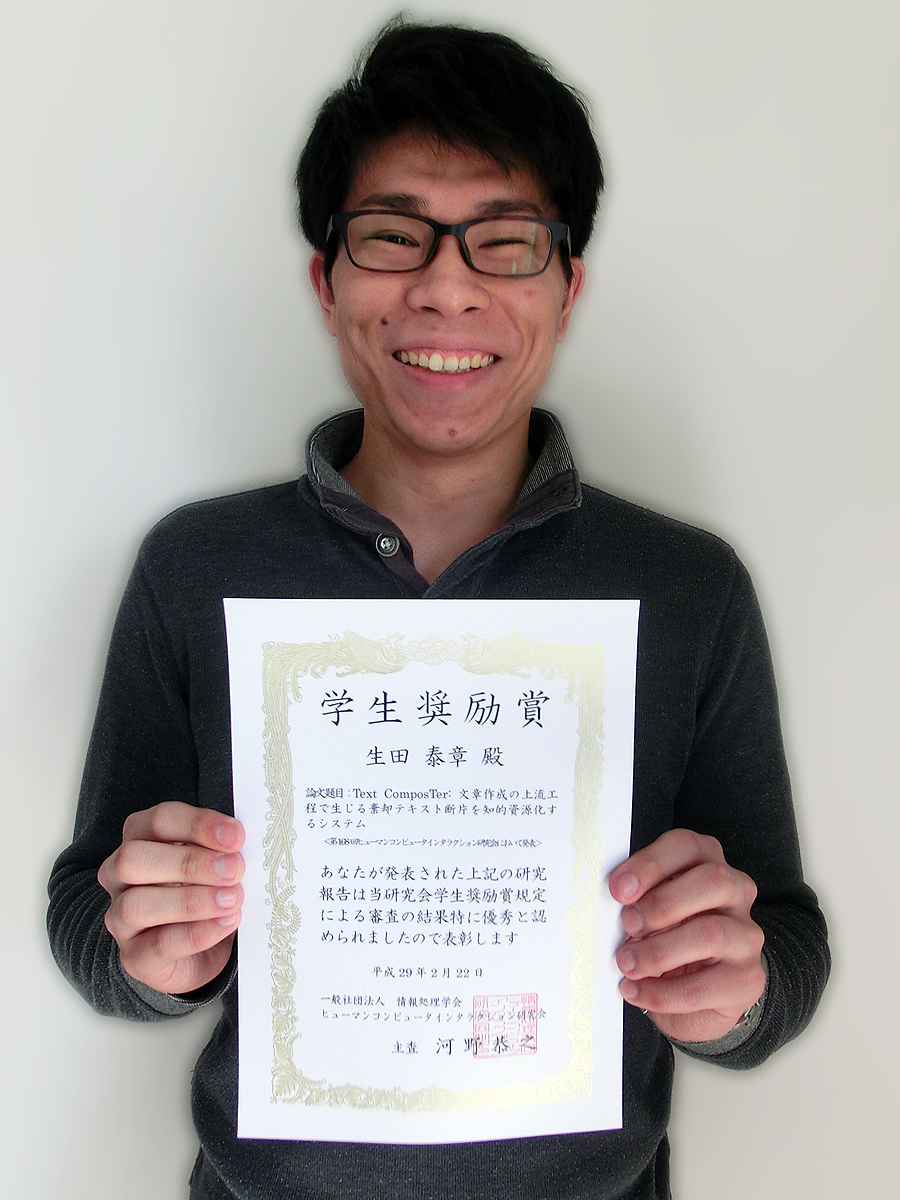 学生奨励賞
生田 泰章 殿
論文題目：Text ComposTer: 文章作成の上流工
程で生じる棄却テキスト断片を知的資源化す
るシステム
<第168回ヒューマンコンピュータインタラクション研究会において発表>
あなたが発表された上記の研究
報告は当研究会学生奨励賞規定
による審査の結果特に優秀と認
められましたので表彰します
平成29年2月22日
一般社団法人 情報処理学会
ヒューマンコンピュータインタラクション研究会
主査 河野 恭之